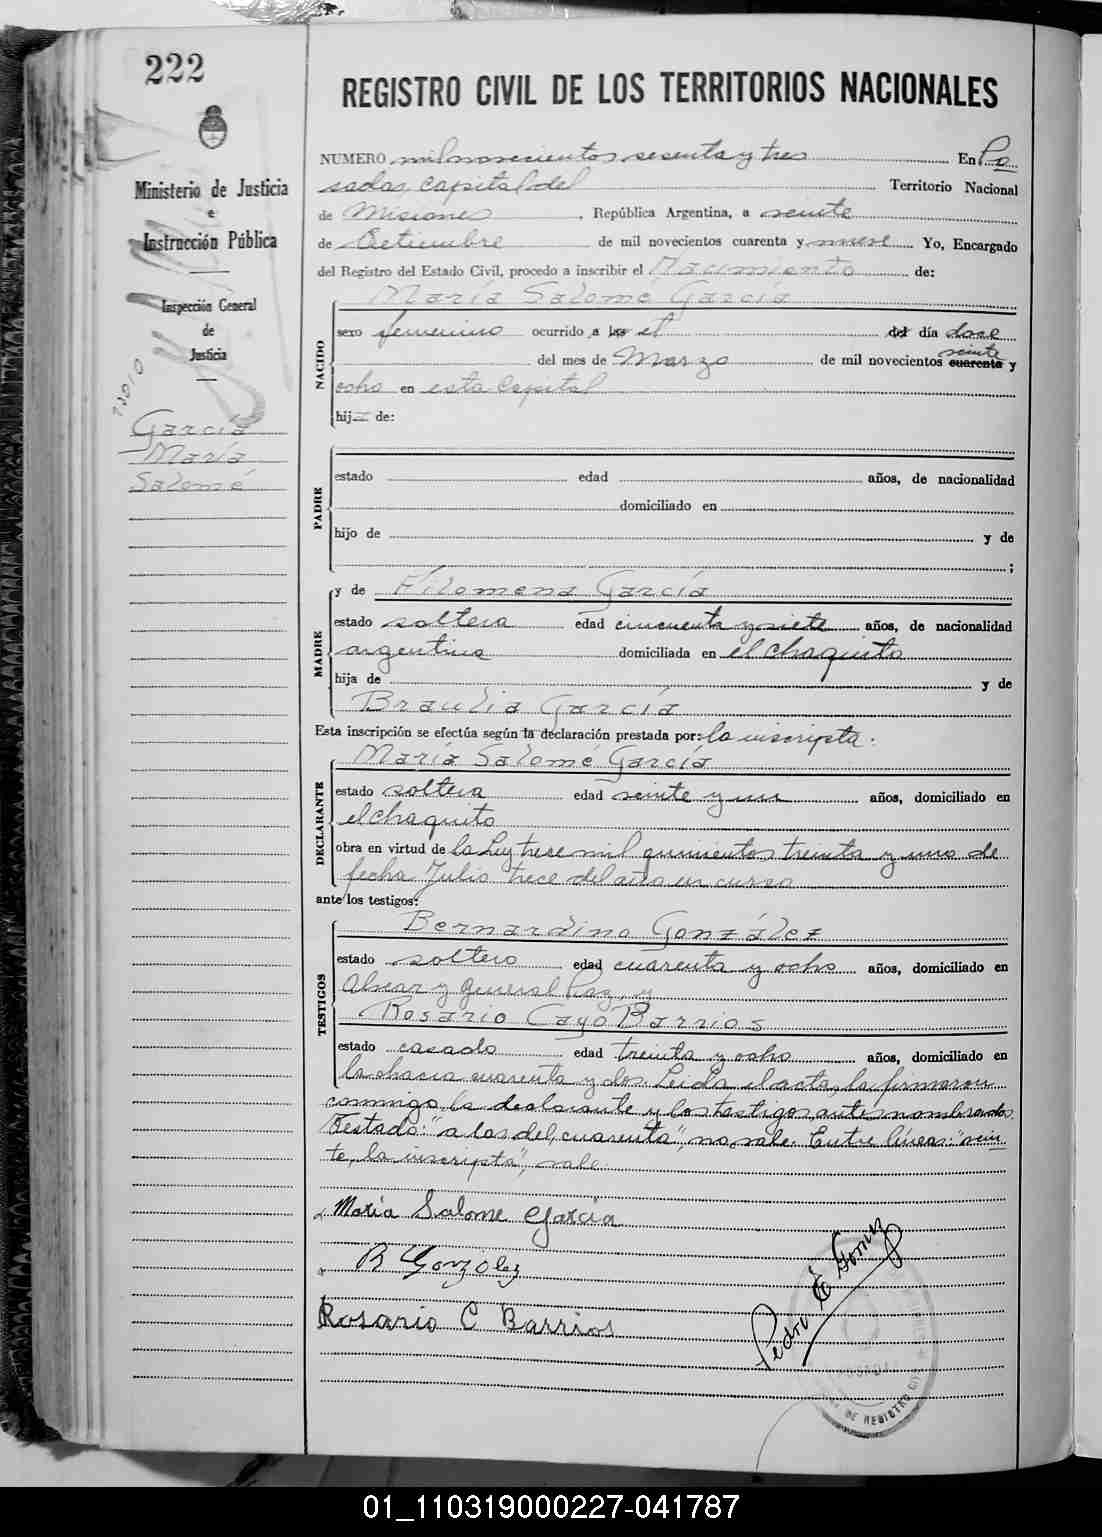 222
REGISTRO CIVIL DE LOS TERRITORIOS NACIONALES
Ministerio de Justicia
e
Instrucción Pública
Inspección General
de
Justicia
García
María
Salomé
NUMERO mil novecientos sesenta y tres En Po
sadas, capital del Territorio Nacional
de Misiones, República Argentina, a veinte
de Setiembre de mil novecientos cuarenta y nueve Yo, Encargado
del Registro del Estado Civil, procedo a inscribir el Nacimiento de:
María Salomé García
NACIDO
sexo femenino ocurrido a las el del día doce
veinte
del mes de Marzo de mil novecientos cuarenta y
ocho en esta Capital
hija de:
PADRE
estado edad años, de nacionalidad
domiciliado en
hijo de y de
;
MADRE
y de Filomena García
estado soltera edad cincuenta y siete años, de nacionalidad
argentina domiciliada en el Chaquito
hija de y de
Braulia García
Esta inscripción se efectúa según la declaración prestada por: la inscripta.
DECLARANTE
María Salomé García
estado soltera edad veinte y un años, domiciliado en
el Chaquito
obra en virtud de la Ley trece mil quinientos treinta y uno de
fecha Julio trece del año en curso
ante los testigos:
TESTIGOS
Bernardino González
estado soltero edad cuarenta y ocho años, domiciliado en
Alvear y General Paz, y
Rosario Cayo Barrios
estado casado edad treinta y ocho años, domiciliado en
la chacra cuarenta y dos. Leida el acta, la firmaron
conmigo, la declarante y los testigos antes nombrados.
Testado: "a las del, cuarenta", no vale. Entre líneas: "vein
te, la inscripta", vale.
María Salome García
B González
Rosario C Barrios
Pedro E Gomez
DE REGISTRO CIVIL
01_110319000227-041787